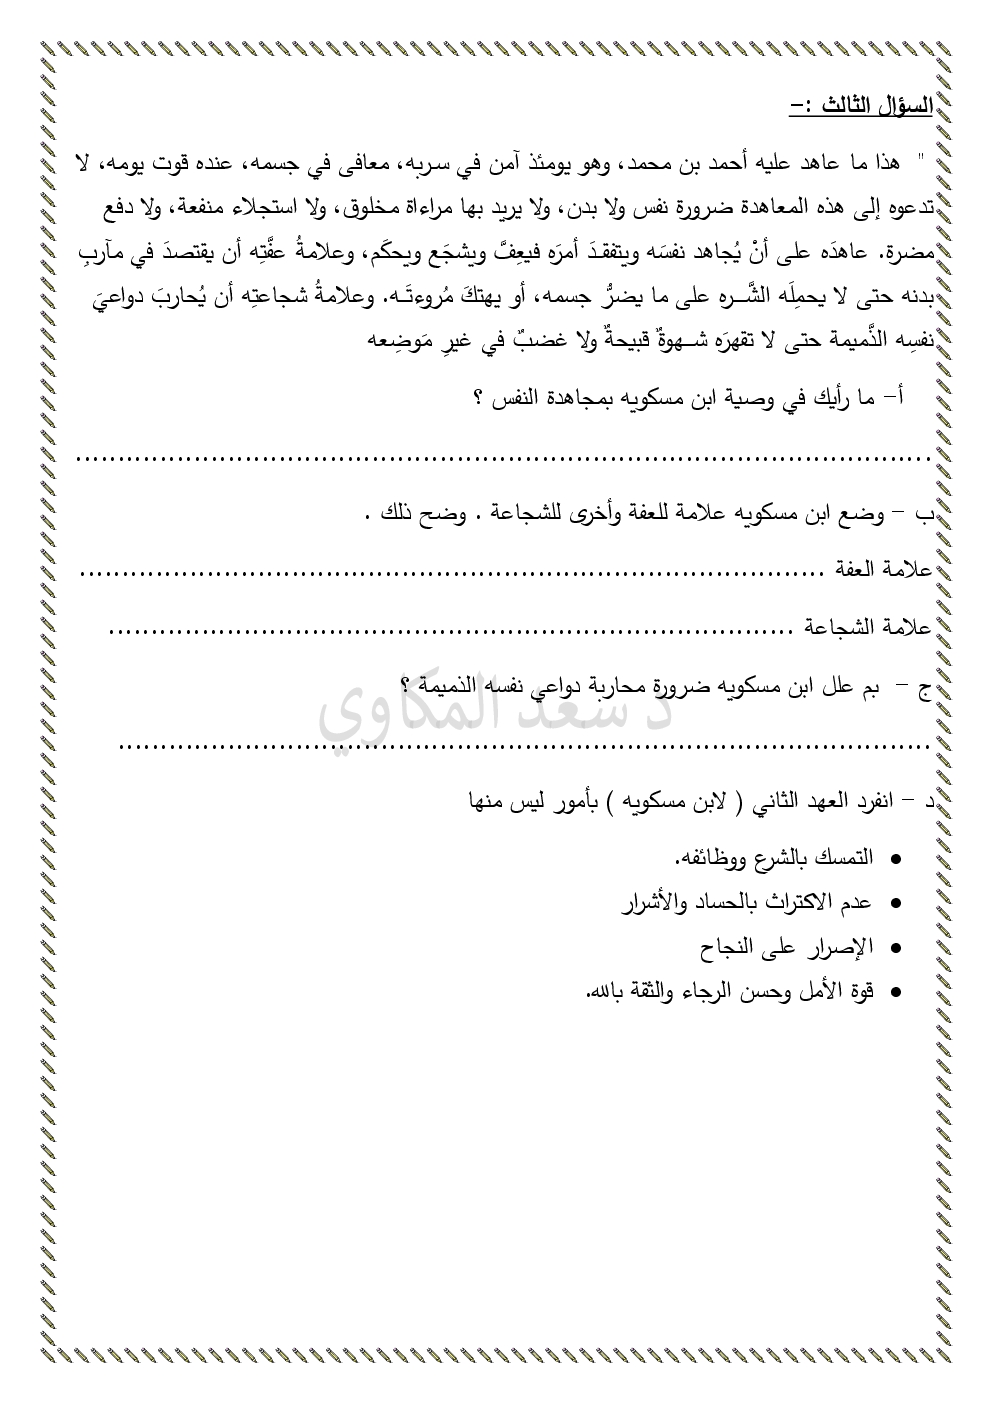 السؤال الثالث :-
" هذا ما عاهد عليه أحمد بن محمد، وهو يومئذ آمن في سربه، معافى في جسمه، عنده قوت يومه، لا
تدعوه إلى هذه المعاهدة ضرورة نفس ولا بدن، ولا يريد بها مراءاة مخلوق، ولا استجلاء منفعة، ولا دفع
مضرة. عاهدَه على أنْ يُجاهد نفسَه ويتفقـدَ أمرَه فيعِفَّ ويشجَع ويحكَم، وعلامةُ عفَّتِه أن يقتصدَ في مآربِ
بدنه حتى لا يحمِلَه الشَّـــره على ما يضرُّ جسمه، أو يهتكَ مُروءتَـه. وعلامةُ شجاعتِه أن يُحاربَ دواعيَ
نفسِه الذَّميمة حتى لا تقهرَه شــهوةٌ قبيحةٌ ولا غضبٌ في غيرِ مَوضِعه
أ- ما رأيك في وصية ابن مسكويه بمجاهدة النفس ؟
....................................................................................................
ب – وضع ابن مسكويه علامة للعفة وأخرى للشجاعة . وضح ذلك .
علامة العفة ........................................................................................
علامة الشجاعة .................................................................................
ج – بم علل ابن مسكويه ضرورة محاربة دواعي نفسه الذميمة ؟
د سعد المكاوي
................................................................................................
د – انفرد العهد الثاني ( لابن مسكويه ) بأمور ليس منها
• التمسك بالشرع ووظائفه.
• عدم الاكتراث بالحساد والأشرار
• الإصرار على النجاح
• قوة الأمل وحسن الرجاء والثقة بالله.